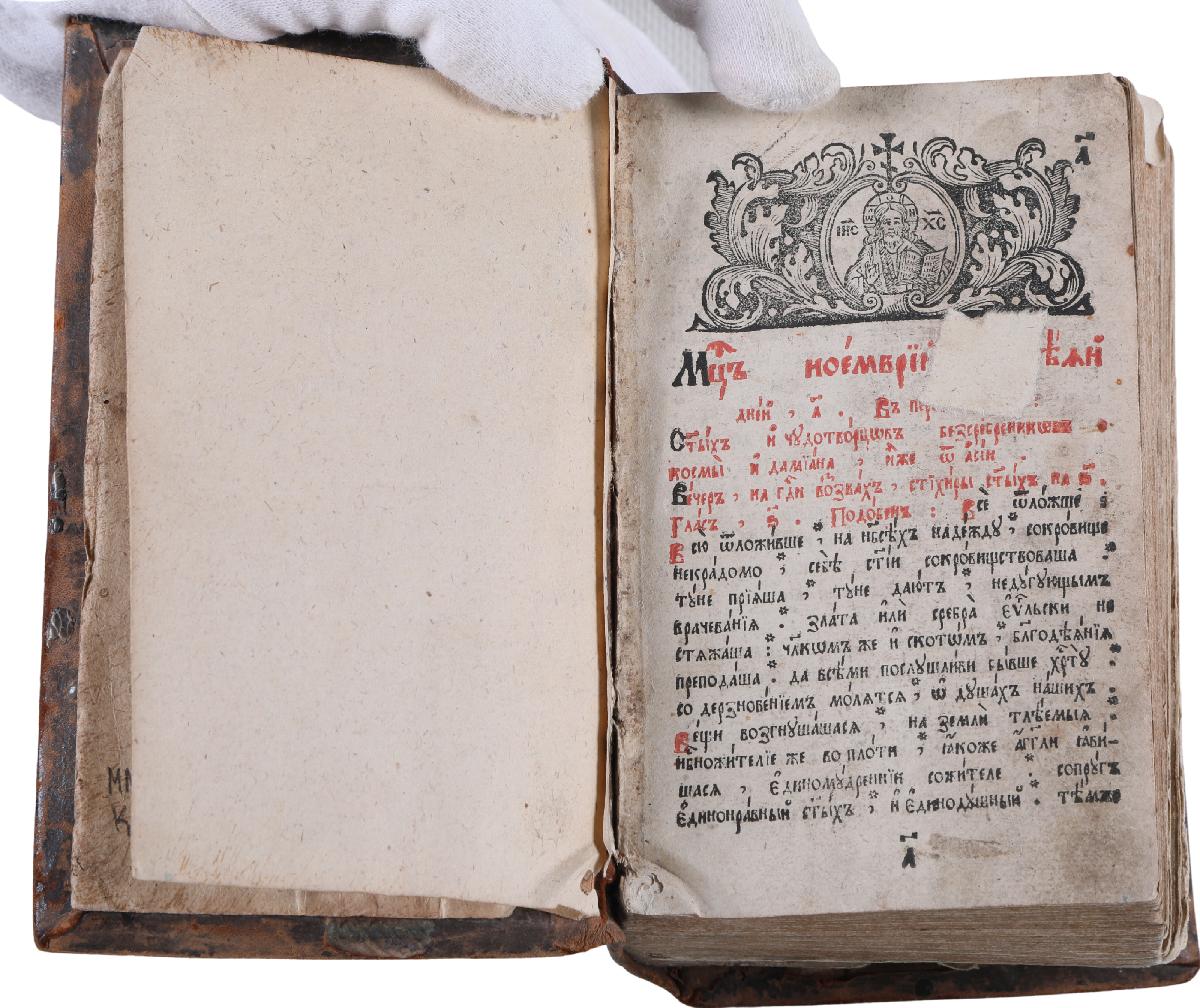 а҃
І҆И҃С Х҃С
Мцⷭ҇ъ ное́мврїй
дни́ , а҃ . Въ
Ст҃ы́хъ и҆ чудотво́рцовъ безсре́бренниковъ .
космы̀ и҆ дамїа́на , и҆́же ѿ а҆сі́и .
Ве́черъ , на гдⷭ҇и возва́хъ , стїхи́ры ст҃ы́хъ на ѕ҃ .
гла́съ , ѕ҃ . Подо́бенъ : Всѐ ѿло́жше :
Всю̀ ѿложи́вше , на нб҃сѣ́хъ наде́жду , сокро́вище
некра́домо , себѣ̀ ст҃і́и сокро́вищствоваша .
ту́не прїя́ша , ту́не даю́тъ , неду́гующымъ
врачева́нїя . зла́та и҆лѝ сребра̀ є҆ѵⷢ҇льски не
стяжа́ша : чл҃кѡмъ же и҆ ското́мъ , бл҃годѣя́нїя
препода́ша . да всѣ́ми послушли́ви бы́вше хрⷭ҇ту̀ .
со дерзнове́нїемъ мо́лятся , ѡ҆ душа́хъ на́шихъ .
Ве́щи возгнуша́шася , на землѝ тлѣ́емыя .
нб҃ножи́телїе же во пло́ти , ꙗ҆́коже а҆́гг҃ли ꙗ҆ви́-
шася , є҆диному́дреннїи сожи́теле . сопру́гъ
є҆динонра́вный ст҃ы́хъ , и҆ є҆диноду́шный . тѣ́мже
а҃
ММ
К